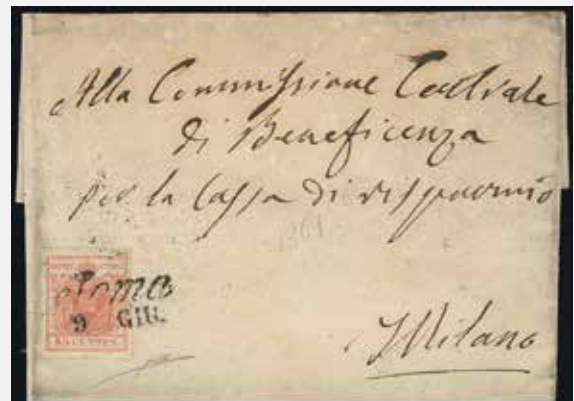 Alla Commissione Centrale
di Beneficenza
per la Cassa di risparmio
1861
Como
9 GIU.
Milano